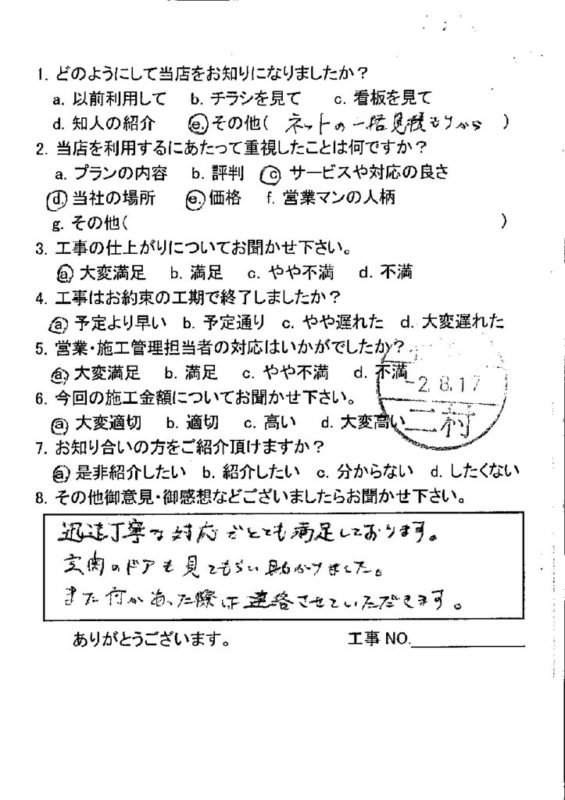 1. どのようにして当店をお知りになりましたか？
a. 以前利用して b. チラシを見て c. 看板を見て
d. 知人の紹介 e. その他( ネットの一括見積もりから )
2. 当店を利用するにあたって重視したことは何ですか？
a. プランの内容 b. 評判 c. サービスや対応の良さ
d. 当社の場所 e. 価格 f. 営業マンの人柄
g. その他( )
3. 工事の仕上がりについてお聞かせ下さい。
a. 大変満足 b. 満足 c. やや不満 d. 不満
4. 工事はお約束の工期で終了しましたか？
a. 予定より早い b. 予定通り c. やや遅れた d. 大変遅れた
5. 営業・施工管理担当者の対応はいかがでしたか？
a. 大変満足 b. 満足 c. やや不満 d. 不満
-2.8.17
6. 今回の施工金額についてお聞かせ下さい。
a. 大変適切 b. 適切 c. 高い d. 大変高い
二村
7. お知り合いの方をご紹介頂けますか？
a. 是非紹介したい b. 紹介したい c. 分からない d. したくない
8. その他御意見・御感想などございましたらお聞かせ下さい。
迅速丁寧な対応でとても満足しております。
玄関のドアも見てもらい助かりました。
また何かあった際は連絡させていただきます。
ありがとうございます。 工事 NO.